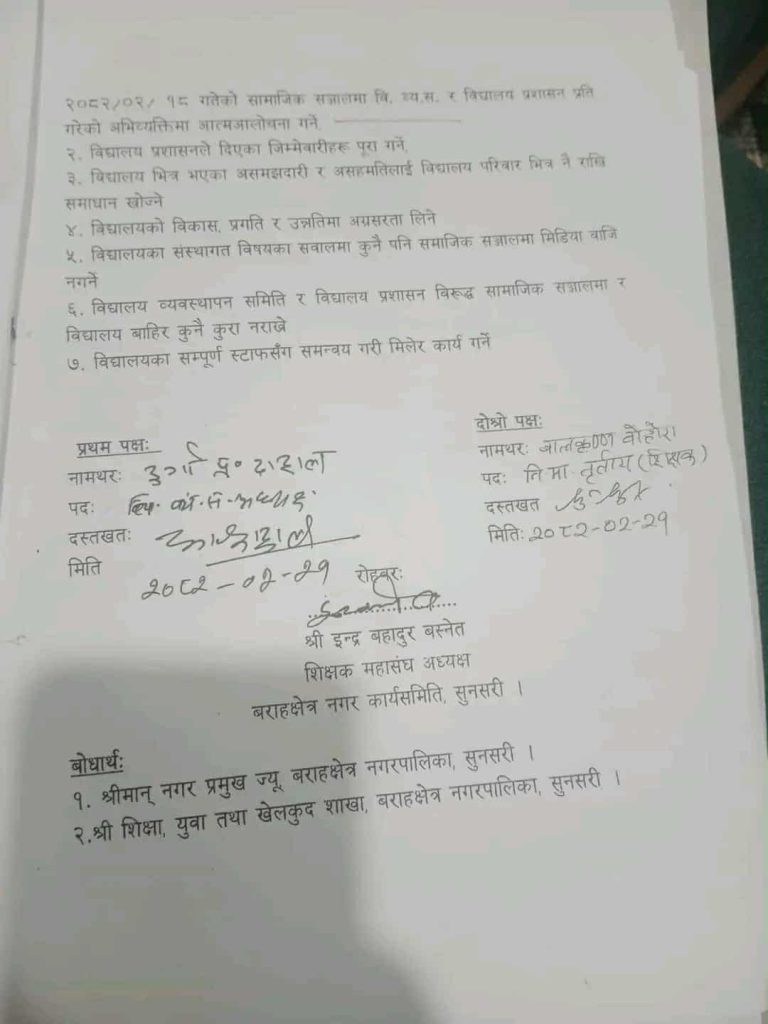 २०८२/०२/ १८ गतेको सामाजिक सञ्जालमा वि. व्य.स. र विद्यालय प्रशासन प्रति
गरेको अभिव्यक्तिमा आत्मआलोचना गर्ने,
२. विद्यालय प्रशासनले दिएका जिम्मेवारीहरू पूरा गर्ने,
३. विद्यालय भित्र भएका असमझदारी र असहमतिलाई विद्यालय परिवार भित्र नै राखि
समाधान खोज्ने
४. विद्यालयको विकास, प्रगति र उन्नतिमा अग्रसरता लिने
५. विद्यालयका संस्थागत विषयका सवालमा कुनै पनि समाजिक सञ्जालमा मिडिया वाजि
नगर्ने
६. विद्यालय व्यवस्थापन समिति र विद्यालय प्रशासन विरूद्ध सामाजिक सञ्जालमा र
विद्यालय बाहिर कुनै कुरा नराख्ने
७. विद्यालयका सम्पूर्ण स्टाफसँग समन्वय गरी मिलेर कार्य गर्ने
प्रथम पक्षः
नामथरः दुर्गा प्र. दाहाल
पदः वि. व्य. स. अध्यक्ष
दस्तखतः
मिति
२०८२-०२-२९
दोश्रो पक्षः
नामथरः बालकृष्ण बोहोरा
पदः नि.मा. तृतीय (शिक्षक)
दस्तखत
मितिः २०८२-०२-२९
रोहवरः
श्री इन्द्र बहादुर बस्नेत
शिक्षक महासंघ अध्यक्ष
बराहक्षेत्र नगर कार्यसमिति, सुनसरी ।
बोधार्थः
१. श्रीमान् नगर प्रमुख ज्यू, बराहक्षेत्र नगरपालिका, सुनसरी ।
२.श्री शिक्षा, युवा तथा खेलकुद शाखा, बराहक्षेत्र नगरपालिका, सुनसरी ।